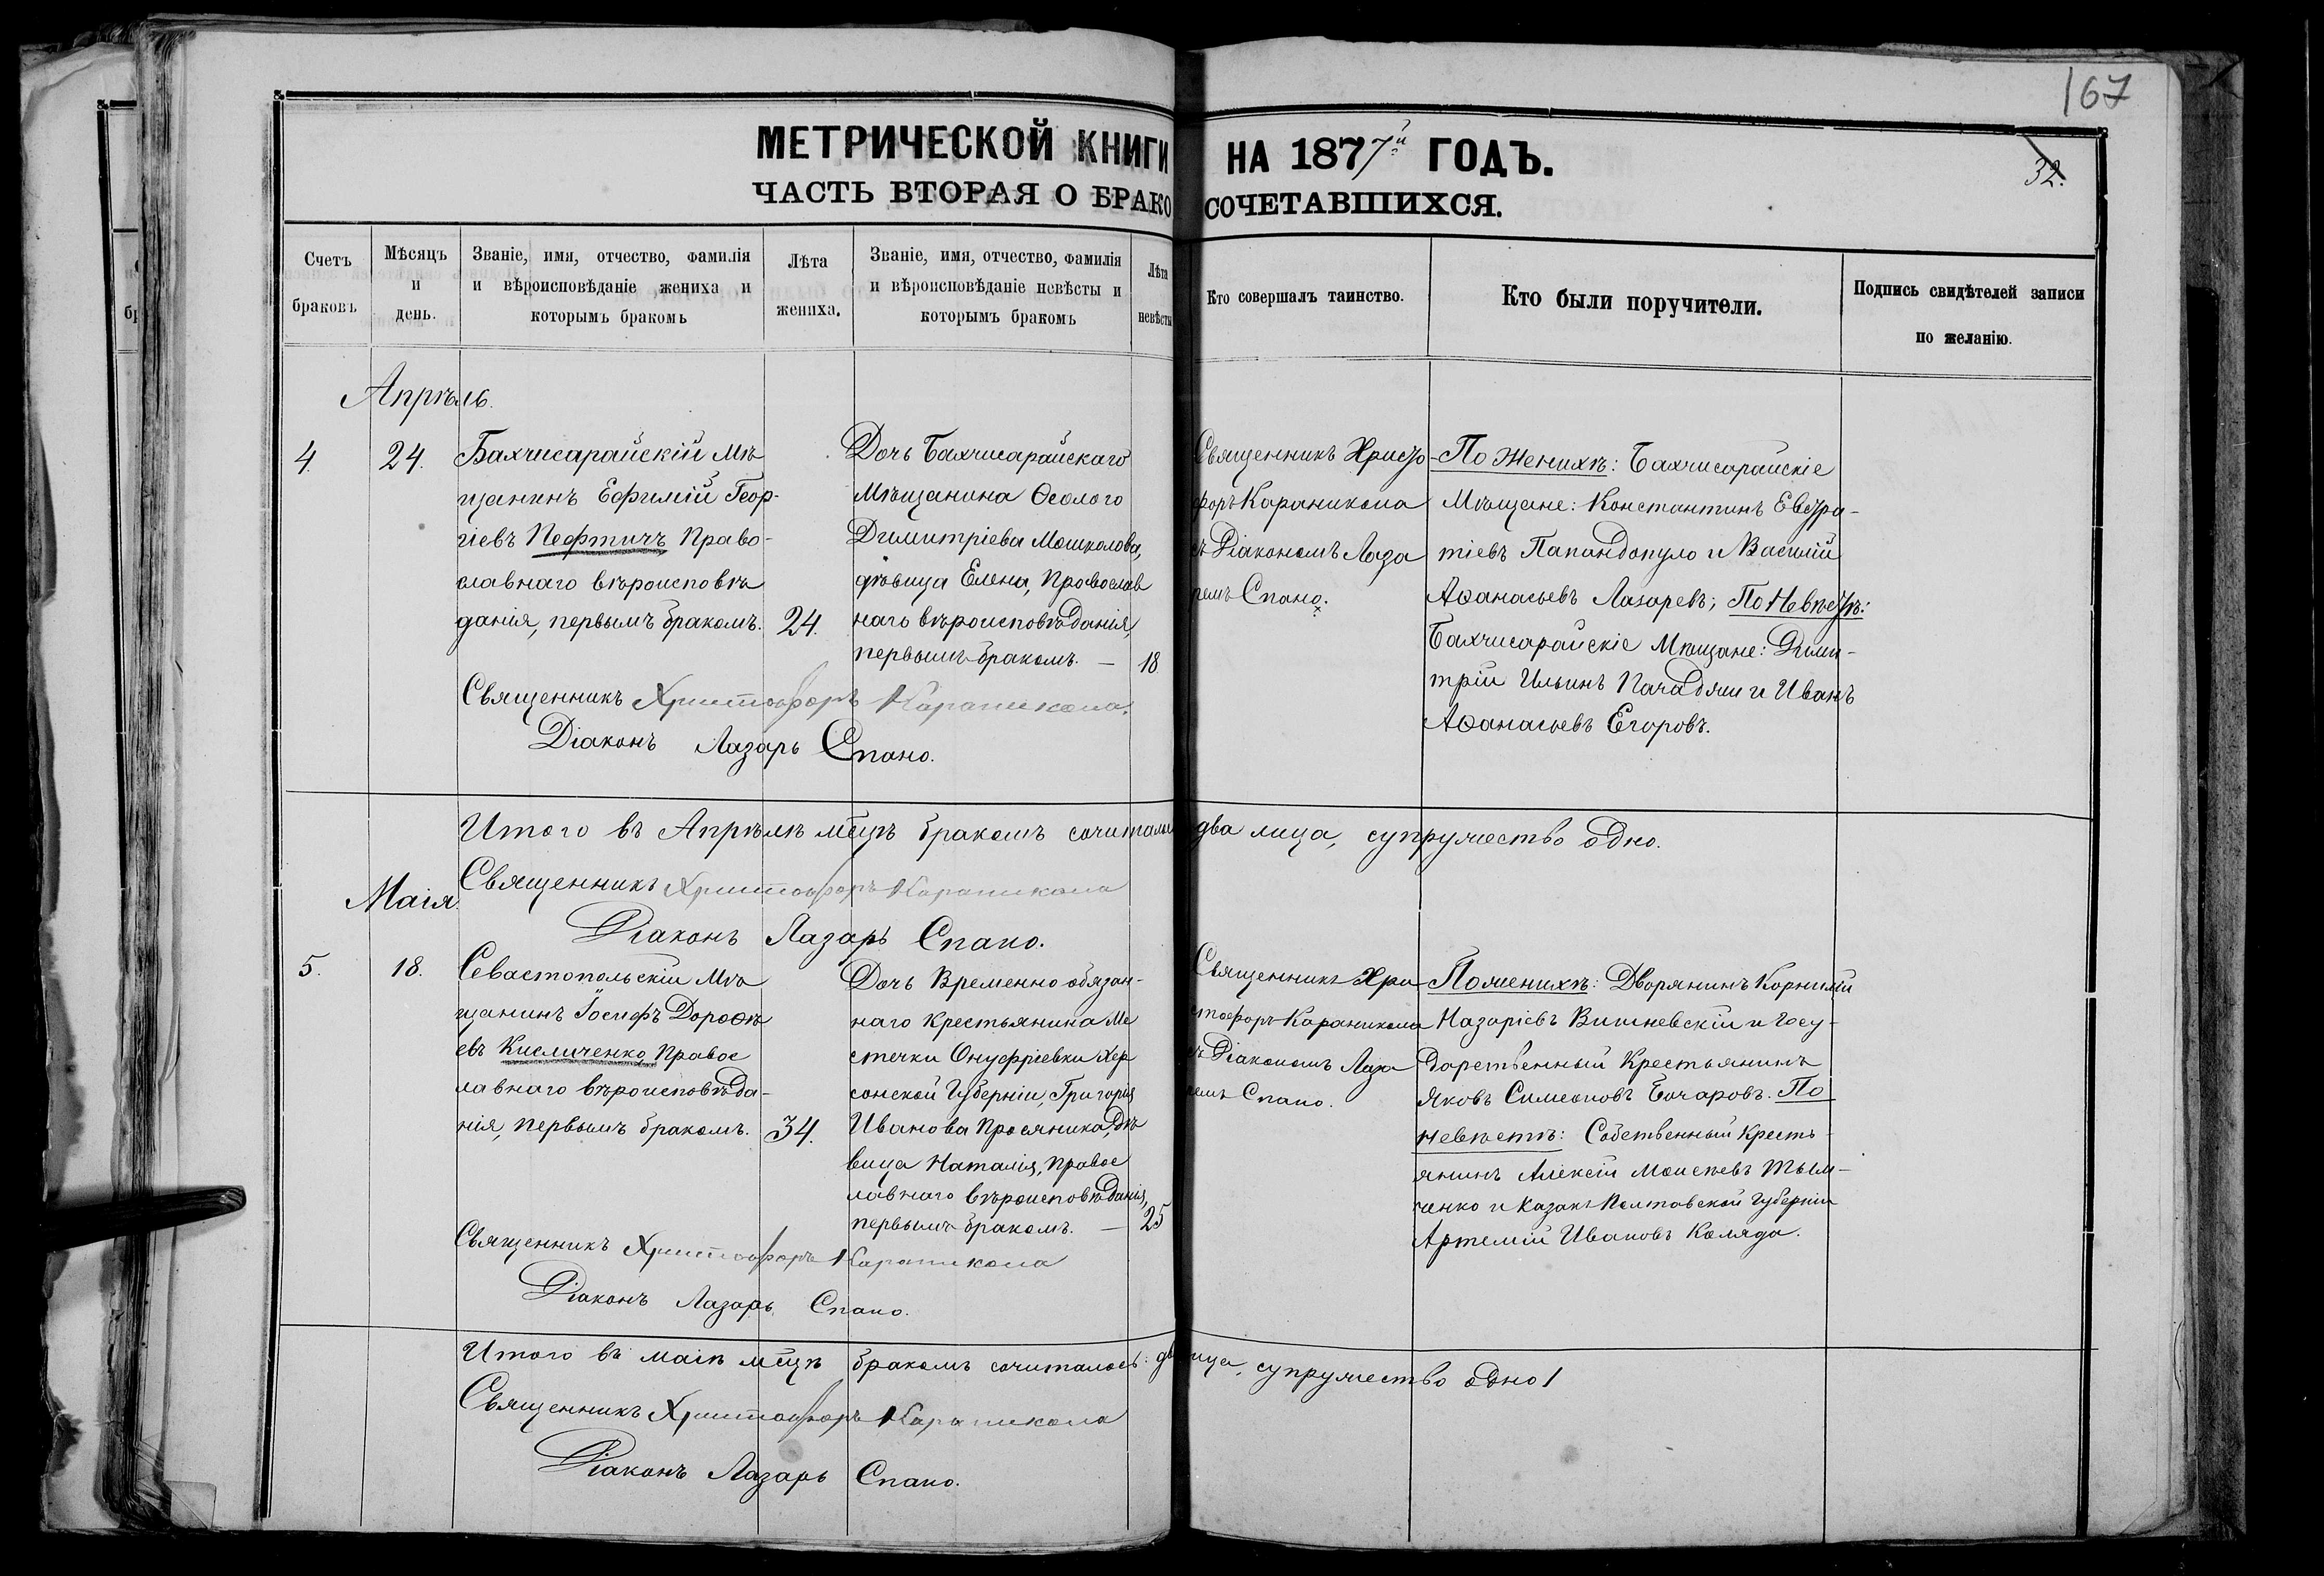 167
МЕТРИЧЕСКОЙ КНИГИ НА 1877й ГОДЪ.
32.
ЧАСТЬ ВТОРАЯ О БРАКОСОЧЕТАВШИХСЯ.
Счетъ браковъ
Мѣсяцъ и день.
Званіе, имя, отчество, фамилія
и вѣроисповѣданіе жениха и
которымъ бракомъ
Лѣта жениха.
Званіе, имя, отчество, фамилія
и вѣроисповѣданіе невѣсты и
которымъ бракомъ
Лѣта невѣсты
Кто совершалъ таинство.
Кто были поручители.
Подпись свидѣтелей записи
по желанію.
Апрѣль.
4.
24.
Бахчисарайскій Мѣ
щанинъ Ефимій Геор-
гіевъ Пефтичъ Право-
славнаго вѣроисповѣ
данія, первымъ бракомъ.
24.
Дочь Бахчисарайскаго
Мѣщанина Ѳеолого
Димитріева Мошколова,
дѣвица Елена, Православ
наго вѣроисповѣданія,
первымъ бракомъ. —
18
Священникъ Христо
форъ Караникола
съ Діакономъ Лаза
ремъ Спано.
По Женихѣ: Бахчисарайскіе
Мѣщане: Константинъ Евстра-
тіевъ Папандопуло и Василій
Аѳанасьевъ Лазаревъ; По Невѣстѣ:
Бахчисарайскіе Мѣщане: Дими-
трій Ильинъ Пачаджи и Иванъ
Аѳанасьевъ Егоровъ.
Священникъ Христофоръ Караникола.
Діаконъ Лазарь Спано.
Итого въ Апрѣлѣ мѣсцѣ бракомъ сочитались два лица, супружество одно.
Священникъ Христофоръ Караникола
Діаконъ Лазарь Спано.
Маія
5.
18.
Севастопольскій Мѣ
щанинъ Іосифъ Дороѳѣ
евъ Кисличенко Правос
лавнаго вѣроисповѣда-
нія, первымъ бракомъ.
34.
Дочь Временно обязан-
наго Крестьянина Ме
стечки Онуфріевки Хер
сонской Губерніи, Григорія
Иванова Просяника, дѣ
вица Наталія, Правос
лавнаго вѣроисповѣданія,
первымъ бракомъ. —
25
Священникъ Хри
стофоръ Караникола
съ Діакономъ Лаза
ремъ Спано.
По женихѣ: Дворянинъ Корнилій
Назаріевъ Вишневскій и Госу-
дарственный Крестьянинъ
Яковъ Симеоновъ Бочаровъ. По
невѣстѣ: Собственный Кресть-
янинъ Алексій Моисѣевъ Тым-
ченко и Казакъ Полтавской Губерніи
Артемій Ивановъ Коляда.
Священникъ Христофоръ Караникола
Діаконъ Лазарь Спано.
Итого въ маіѣ мѣсцѣ бракомъ сочиталось: два лица, супружество одно 1
Священникъ Христофоръ Караникола
Діаконъ Лазарь Спано.